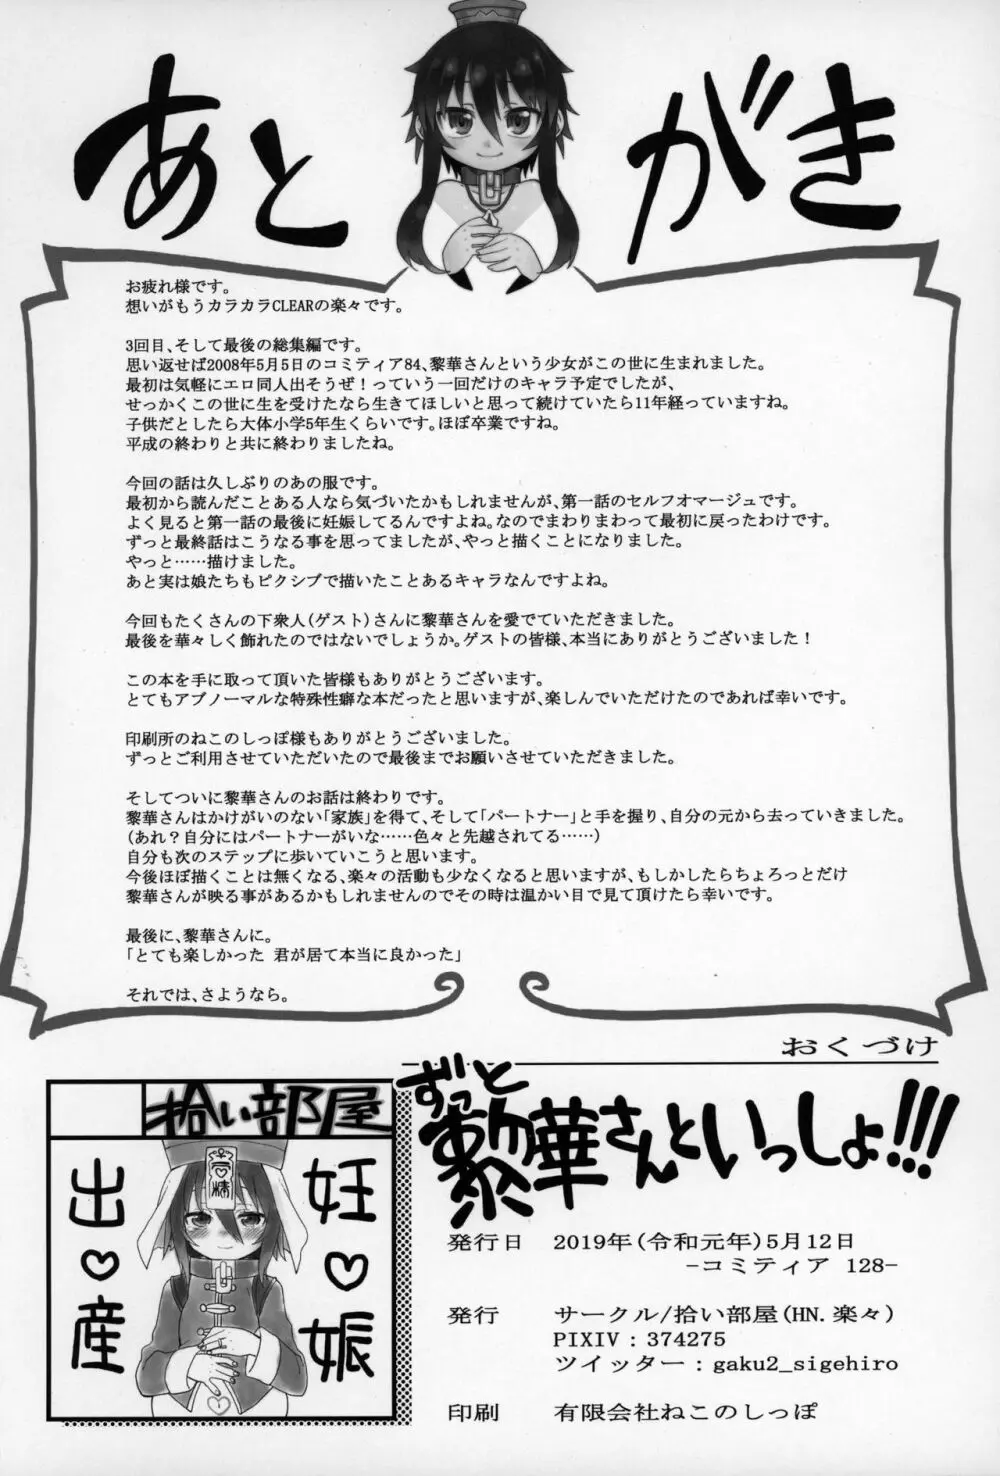 あとがき
お疲れ様です。
想いがもうカラカラCLEARの楽々です。
3回目、そして最後の総集編です。
思い返せば2008年5月5日のコミティア84、黎華さんという少女がこの世に生まれました。
最初は気軽にエロ同人出そうぜ！っていう一回だけのキャラ予定でしたが、
せっかくこの世に生を受けたなら生きてほしいと思って続けていたら11年経っていますね。
子供だとしたら大体小学5年生くらいです。ほぼ卒業ですね。
平成の終わりと共に終わりましたね。
今回の話は久しぶりのあの服です。
最初から読んだことある人なら気づいたかもしれませんが、第一話のセルフオマージュです。
よく見ると第一話の最後に妊娠してるんですよね。なのでまわりまわって最初に戻ったわけです。
ずっと最終話はこうなる事を思ってましたが、やっと描くことになりました。
やっと……描けました。
あと実は娘たちもピクシブで描いたことあるキャラなんですよね。
今回もたくさんの下衆人(ゲスト)さんに黎華さんを愛でていただきました。
最後を華々しく飾れたのではないでしょうか。ゲストの皆様、本当にありがとうございました！
この本を手に取って頂いた皆様もありがとうございます。
とてもアブノーマルな特殊性癖な本だったと思いますが、楽しんでいただけたのであれば幸いです。
印刷所のねこのしっぽ様もありがとうございました。
ずっとご利用させていただいたので最後までお願いさせていただきました。
そしてついに黎華さんのお話は終わりです。
黎華さんはかけがいのない「家族」を得て、そして「パートナー」と手を握り、自分の元から去っていきました。
(あれ？自分にはパートナーがいな……色々と先越されてる……)
自分も次のステップに歩いていこうと思います。
今後ほぼ描くことは無くなる、楽々の活動も少なくなると思いますが、もしかしたらちょろっとだけ
黎華さんが映る事があるかもしれませんのでその時は温かい目で見て頂けたら幸いです。
最後に、黎華さんに。
「とても楽しかった 君が居て本当に良かった」
それでは、さようなら。
おくづけ
ずっと
黎華さんといっしょ!!!
発行日 2019年(令和元年)5月12日
-コミティア 128-
発行 サークル/拾い部屋(HN.楽々)
PIXIV：374275
ツイッター：gaku2_sigehiro
印刷 有限会社ねこのしっぽ
拾い部屋
妊♡娠
出♡産